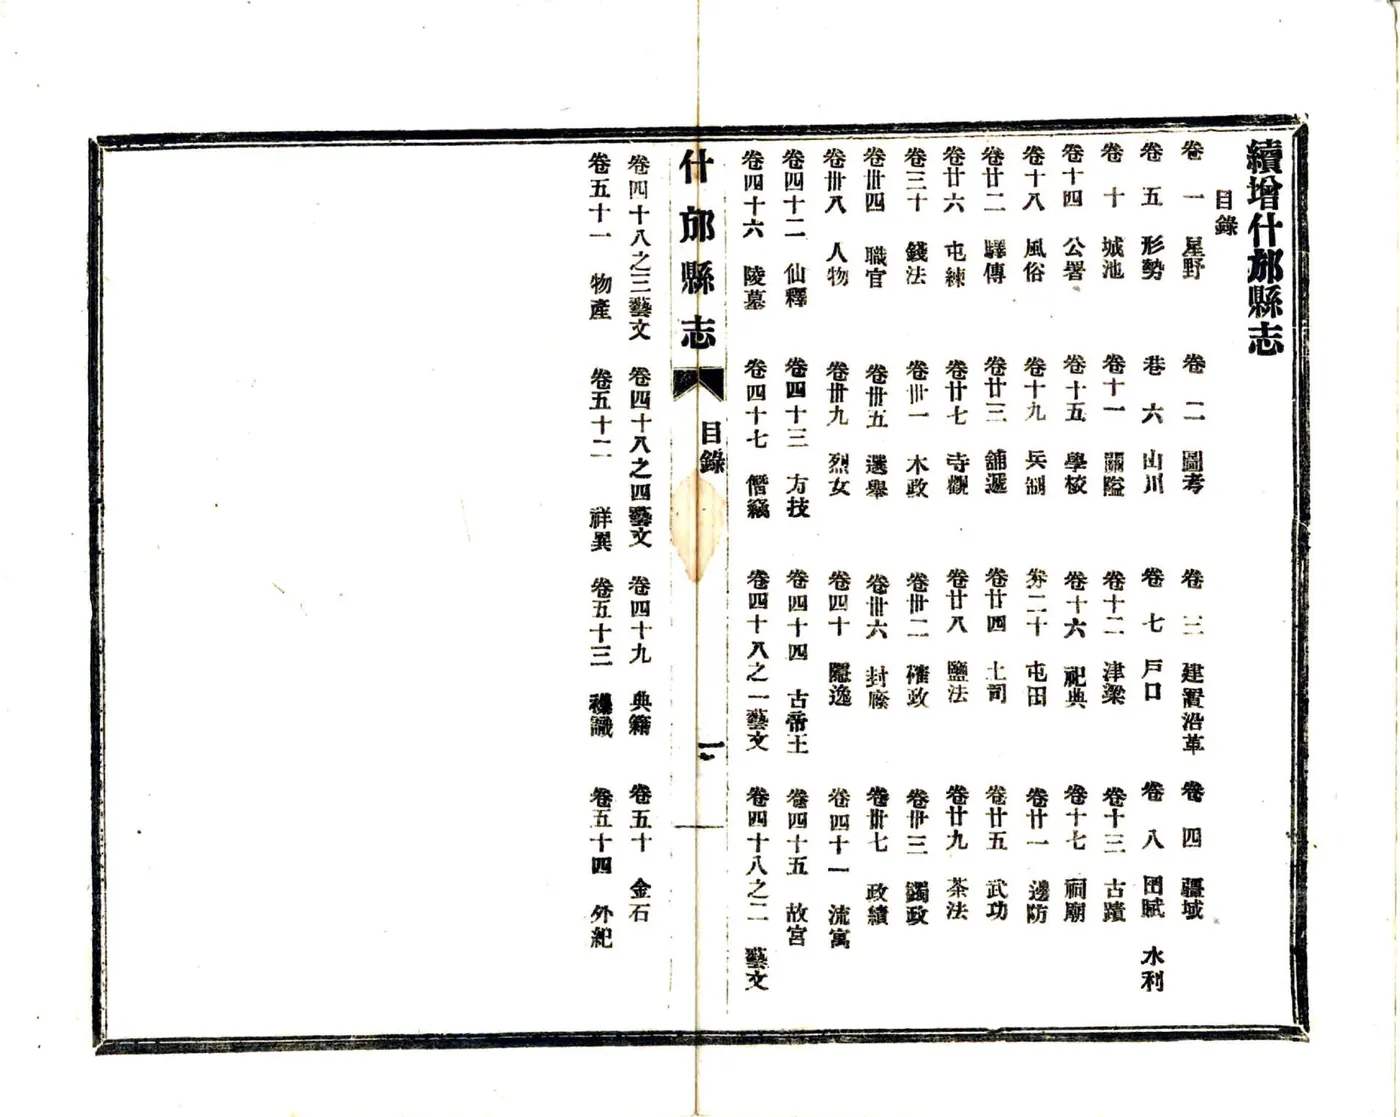 續增什邡縣志
目錄
卷一 星野 卷二 圖考 卷三 建置沿革 卷四 疆域
卷五 形勢 卷六 山川 卷七 戶口 卷八 田賦 水利
卷十 城池 卷十一 關隘 卷十二 津梁 卷十三 古蹟
卷十四 公署 卷十五 學校 卷十六 祀典 卷十七 祠廟
卷十八 風俗 卷十九 兵制 卷二十 屯田 卷廿一 邊防
卷廿二 驛傳 卷廿三 舖遞 卷廿四 土司 卷廿五 武功
卷廿六 屯練 卷廿七 寺觀 卷廿八 鹽法 卷廿九 茶法
卷三十 錢法 卷卅一 木政 卷卅二 榷政 卷卅三 蠲政
卷卅四 職官 卷卅五 選舉 卷卅六 封廕 卷卅七 政績
卷卅八 人物 卷卅九 烈女 卷四十 隱逸 卷四十一 流寓
卷四十二 仙釋 卷四十三 方技 卷四十四 古帝王 卷四十五 故宮
卷四十六 陵墓 卷四十七 僭竊 卷四十八之一藝文 卷四十八之二 藝文
什邡縣志 目錄 一
卷四十八之三藝文 卷四十八之四藝文 卷四十九 典籍 卷五十 金石
卷五十一 物產 卷五十二 祥異 卷五十三 襍識 卷五十四 外紀